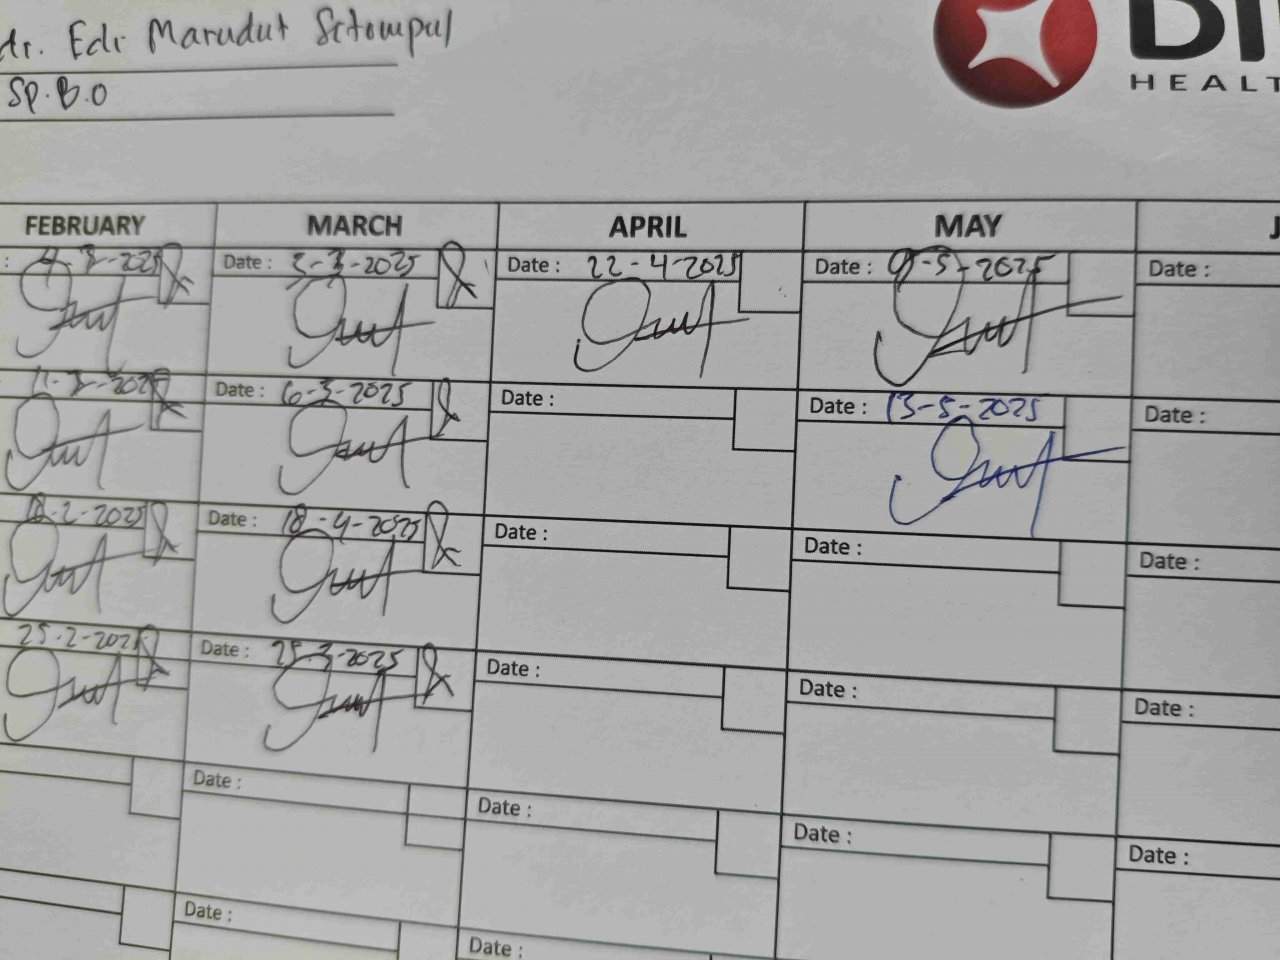 dr. Edi Marudut Sitompul
Sp.B.O
DI
HEALT
FEBRUARY MARCH APRIL MAY J
: 4-2-2025 Date : 3-3-2025 Date : 22-4-2025 Date : 9-5-2025 Date :
11-2-2025 Date : 6-3-2025 Date : Date : 13-5-2025 Date :
18-2-2025 Date : 18-4-2025 Date : Date : Date :
25-2-2025 Date : 25-3-2025 Date : Date : Date :
Date : Date : Date : Date :
Date : Date :